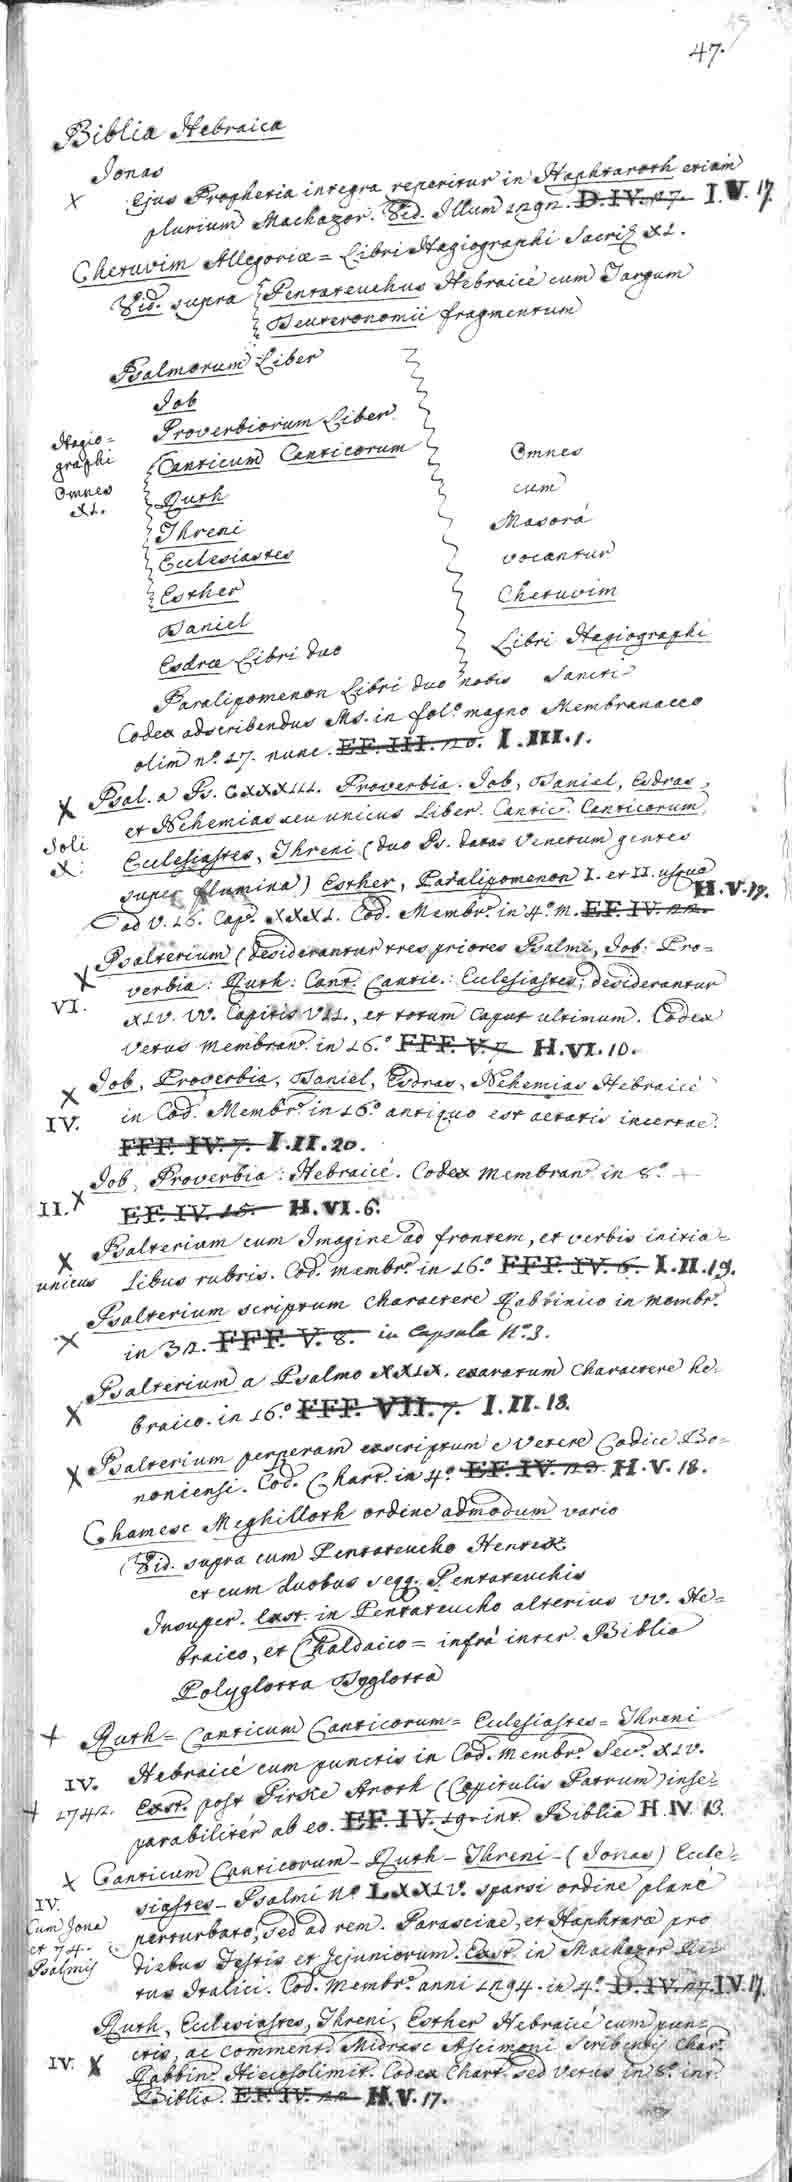 47.
Biblia Hebraica
Jonas
X Ejus Prophetia integra reperitur in Haphtaroth etiam
plurium Machazor. Vid. Illum 1292. D. IV. 17. I. V. 17.
Cheruvim Allegoriæ = Libri Hagiographi Sacri XI.
Vid. supra Pentateuchus Hebraicè cum Targum
Deuteronomii fragmentum
Psalmorum Liber
Job
Proverbiorum Liber
Hagio=
graphi
Omnes
XI.
Canticum Canticorum
Ruth
Threni
Ecclesiastes
Esther
Daniel
Esdræ Libri duo
Omnes
cum
Masorá
vocantur
Chetuvim
Libri Hagiographi
Paralipomenon Libri duo nobis Sancti
Codex adscribendus Ms. in fol.º magno Membranaceo
olim nº. 17. nunc. EF. III. 20. I. III. 1.
X Psal. a Ps. CXXXIII. Proverbia. Job, Daniel, Esdras,
et Nehemias seu unicus Liber. Cantic. Canticorum,
Soli
X.
Ecclesiastes, Threni (duo Ps. datas Venetum gentes
super flumina) Esther, Paralipomenon I. et II. usque
ad V. 16. Cap. XXXI. Cod. Membr. in 4º m. EF. IV. 22. H. V. 19.
X Psalterium (desiderantur tres priores Psalmi, Job: Pro=
VI.
verbia: Ruth: Cant. Cantic.: Ecclesiastes; desiderantur
XIV. VV. Capitis VII., et totum Caput ultimum. Codex
Vetus membran. in 16.º FFF. V. 7. H. VI. 10.
X Job, Proverbia, Daniel, Esdras, Nehemias Hebraicè
IV.
in Cod. Membr. in 16.º antiquo est aetatis incertae.
FFF. IV. 7. I. II. 20.
II. X Job, Proverbia: Hebraicè. Codex membran. in 8.º
EF. IV. 15. H. VI. 6.
X Psalterium cum Imagine ad frontem, et verbis initia=
unicus libus rubris. Cod. membr. in 16.º FFF. IV. 6. I. II. 19.
X Psalterium scriptum charactere Rabbinico in membr.
in 32. FFF. V. 8. in Capsula Nº. 3.
X Psalterium a Psalmo XXIX. exaratum charactere he=
braico. in 16.º FFF. VII. 7. I. II. 18.
X Psalterium perperam exscriptum e vetere Codice Bo=
noniensi. Cod. Chart. in 4º EF. IV. 23. H. V. 18.
Chamesc Meghilloth ordine admodum vario
Vid. supra cum Pentateucho
et cum duobus seqq. Pentateuchis
Insuper. Exst. in Pentateucho alterius VV. He=
braico, et Chaldaico = infrà inter Biblia
Polyglotta Dyglotta
+ Ruth = Canticum Canticorum = Ecclesiastes = Threni
IV. Hebraicè cum punctis in Cod. membr. Sec. XIV.
+ 1742. Exst. post Pirke Avoth (Capitulis Patrum) inse=
parabilitèr ab eo. EF. IV. 19. int. Biblia H. IV. 13.
X Canticum Canticorum - Ruth - Threni - (Jonas) Eccle=
IV.
Cum Jona
et 74.
Psalmis
siastes - Psalmi nº. LXXIV. sparsi ordine planè
perturbato, sed ad rem. Parasciae, et Haphtaræ pro
diebus Festis et Jejuniorum. Exst. in Machazor Ri=
tus Italici. Cod. Membr. anni 1294. in 4.º D. IV. 17. I V. 17.
Ruth, Ecclesiastes, Threni, Esther Hebraicè cum pun=
IV. X
ctis, ac Comment. Midrasc Ascimoni Scribentis Char.
Rabbin. Hierosolimit. Codex Chart. sed Vetus in 8.º int.
Biblia. EF. IV. 22. H. V. 17.